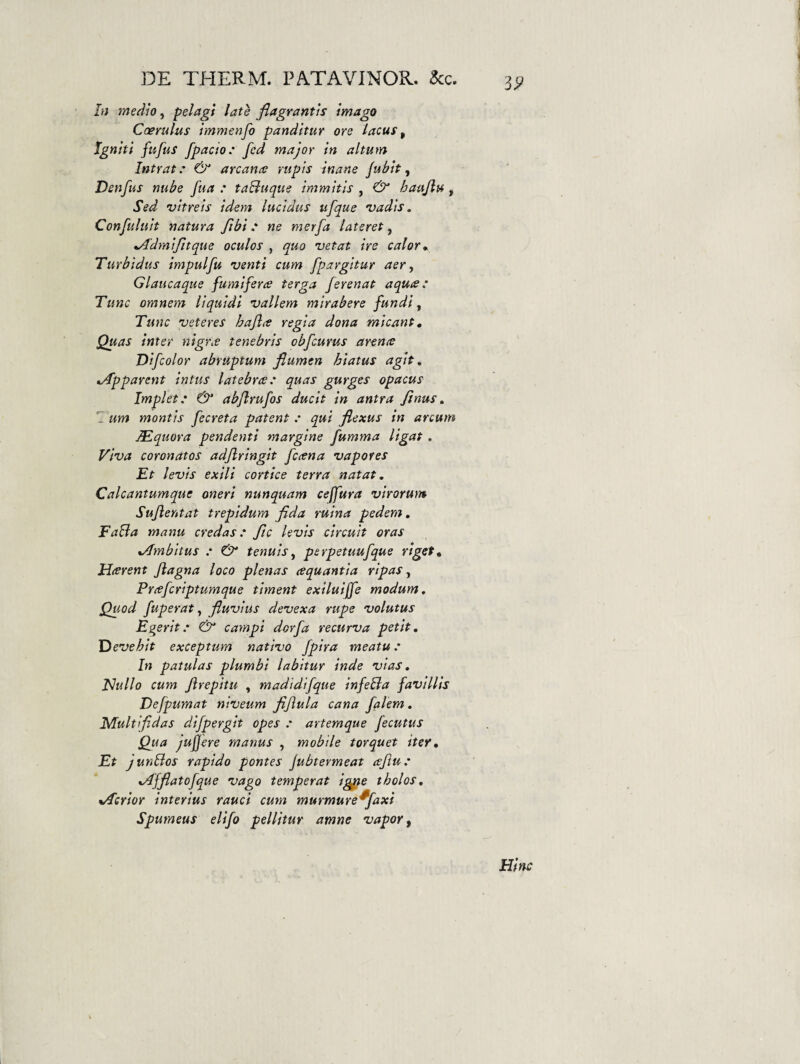 DE THERM. PATAVINOR. &c. 39
In medio, pelagi latè flagrantis imago
Cœrulus immenſo panditur ore lacus,
Igniti fuſus ſpacio: ſed major in altum
Intrat: & arcanæ rupis inane ſubit,
Denſus nube ſua: tactuque immitis, & hauſtu,
Sed vitreis idem lucidus uſque vadis.
Conſuluit natura ſibi: ne merſa lateret,
Admiſitque oculos, quo vetat ire calor.
Turbidus impulſu venti cum ſpargitur aer,
Glaucaque fumiferæ terga ſerenat aquæ:
Tunc omnem liquidi vallem mirabere fundi,
Tunc veteres haſtæ regia dona micant.
Quas inter nigræ tenebris obſcurus arenæ
Diſcolor abruptum flumen hiatus agit.
Apparent intus latebræ: quas gurges opacus
Implet: & abſtruſos ducit in antra ſinus.
um montis ſecreta patent: qui flexus in arcum
Æquora pendenti margine ſumma ligat.
Viva coronatos adſtringit ſcæna vapores
Et levis exili cortice terra natat.
Calcantumque oneri nunquam ceſſura virorum
Suſtentat trepidum fida ruina pedem.
Facta manu credas: ſic levis circuit oras
Ambitus: & tenuis, perpetuuſque riget.
Hærent ſtagna loco plenas æquantia ripas,
Præſcriptumque timent exiluiſſe modum.
Quod ſuperat, fluvius devexa rupe volutus
Egerit: & campi dorſa recurva petit.
Devehit exceptum nativo ſpira meatu:
In patulas plumbi labitur inde vias.
Nullo cum ſtrepitu, madidiſque infecta favillis
Deſpumat niveum fiſtula cana ſalem.
Multifidas diſpergit opes: artemque ſecutus
Qua juſſere manus, mobile torquet iter.
Et junctos rapido pontes ſubtermeat æſtu:
Afflatoſque vago temperat igne tholos.
Acrior interius rauci cum murmure ſaxi
Spumeus eliſo pellitur amne vapor,
Hinc